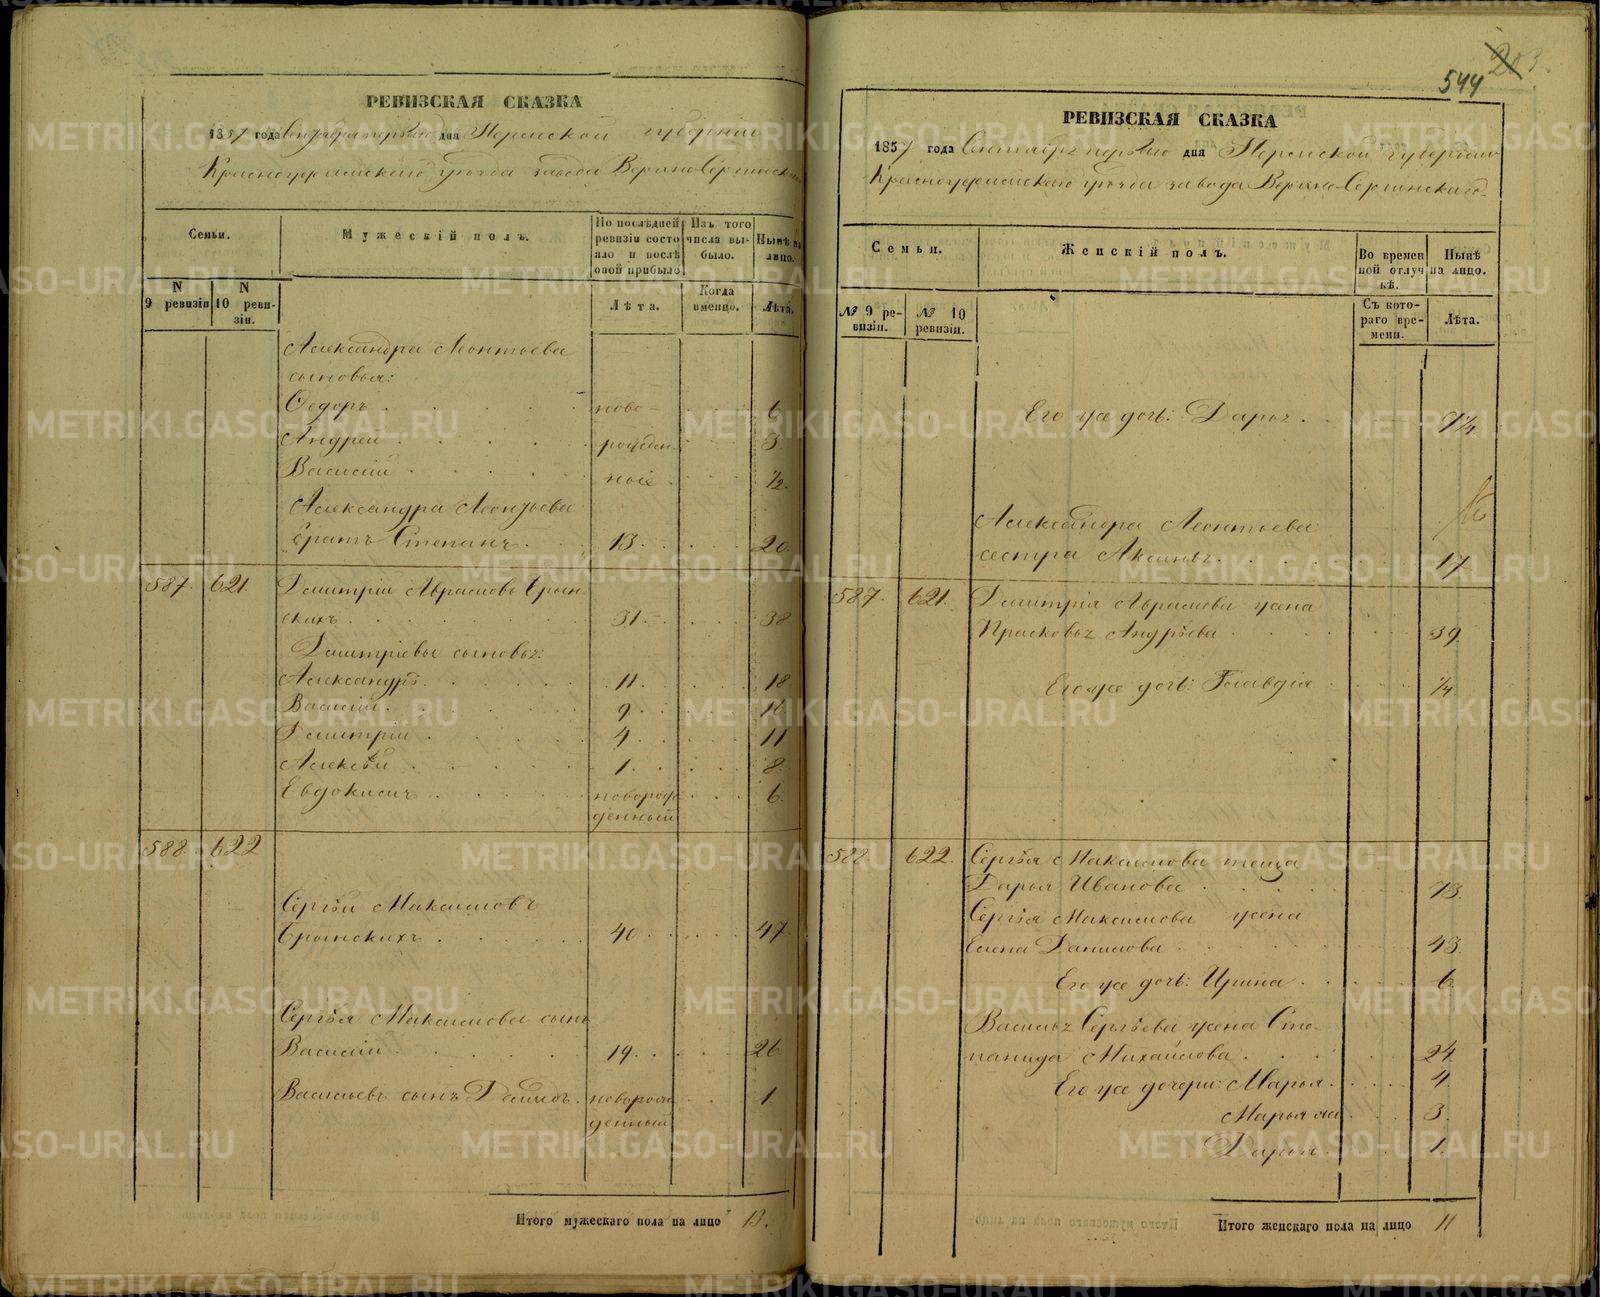 РЕВИЗСКАЯ СКАЗКА
1857 года Сентября первого дня Пермской губернии
Красноуфимского уѣзда завода Верхно-Сергинскаго
Семьи.
Мужескій полъ.
По послѣдней ревизіи состояло и послѣ оной прибыло
Изъ того числа выбыло.
Нынѣ на лицо.
N 9 ревизіи
N 10 ревизіи.
Лѣта.
Когда именно.
Лѣта.
Александра Леонтьева
сыновья:
Ѳедоръ . ново- 6
Андрей . рожден- 3
Василій . ные 1/2
Александра Леонтьева
братъ Степанъ . 13 . 20
587. 621. Дмитрій Абрамовъ Брын-
скихъ . 31 . 38
Дмитріевы сыновья:
Александръ . 11 . 18
Василій . 9 . 16
Дмитрій . 4 . 11
Алексѣй . 1 . 8
Евдокимъ . новорож- 6
денный
588. 622
Сергѣй Максимовъ
Брынскихъ . 40 . 47
Сергѣя Максимова сынъ
Василій . 19 . 26
Васильевъ сынъ Давидъ . новорож- 1
денный
Итого мужескаго пола на лицо 13.
203.
544
РЕВИЗСКАЯ СКАЗКА
1857 года Сентября первого дня Пермской губерніи
Красноуфимскаго уѣзда завода Верхно-Сергинскаго
Семьи.
Женскій полъ.
Во временной отлучкѣ.
Нынѣ на лицо.
№ 9 ревизіи.
№ 10 ревизіи.
Съ котораго времени.
Лѣта.
Его же дочь: Дарья . 1/4
Александра Леонтьева
сестра Аксинья . 17
587. 621. Дмитрія Абрамова жена
Прасковья Андрѣева . 39
Его же дочь: Клавдія . 1/4
588 622. Сергѣя Максимова теща
Дарья Иванова . 73.
Сергѣя Максимова жена
Елена Данилова . 43.
Его же дочь: Ирина . 6
Василья Сергѣева жена Сте-
панида Михайлова . 24
Его же дочери: Марья . 4
Марья же . 3.
Дарья . 1.
Итого женскаго пола на лицо 11
METRIKI.GASO-URAL.RU